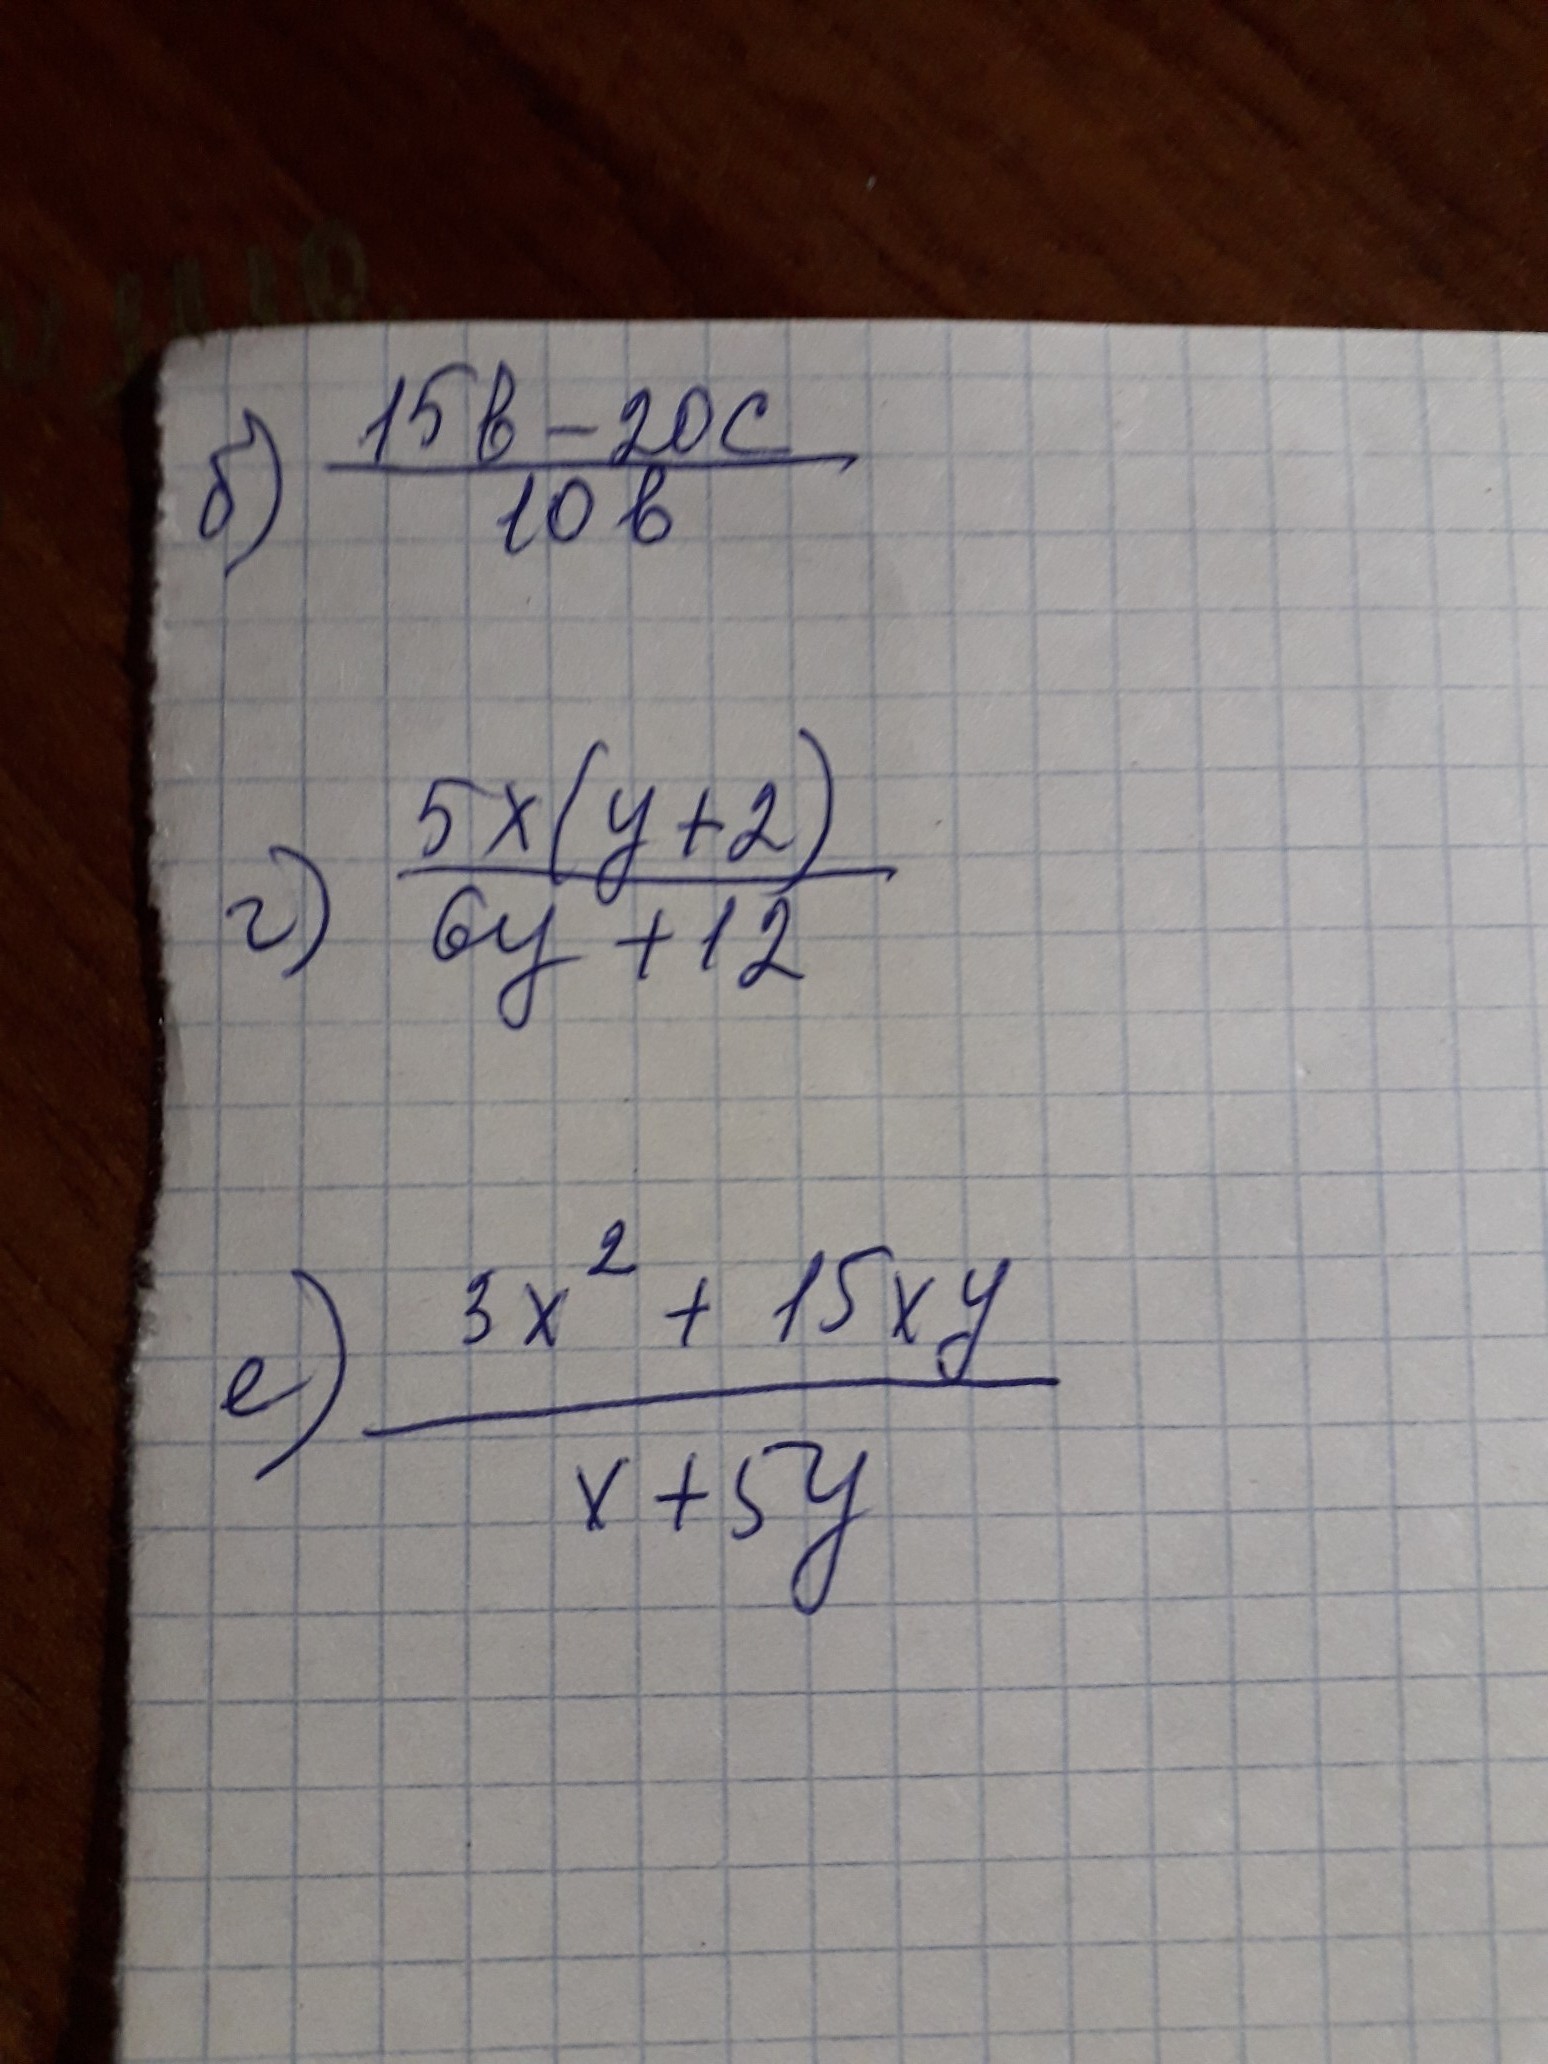 б) 15b - 20c
10b
г) 5x(y+2)
6y + 12
е) 3x² + 15xy
x + 5y